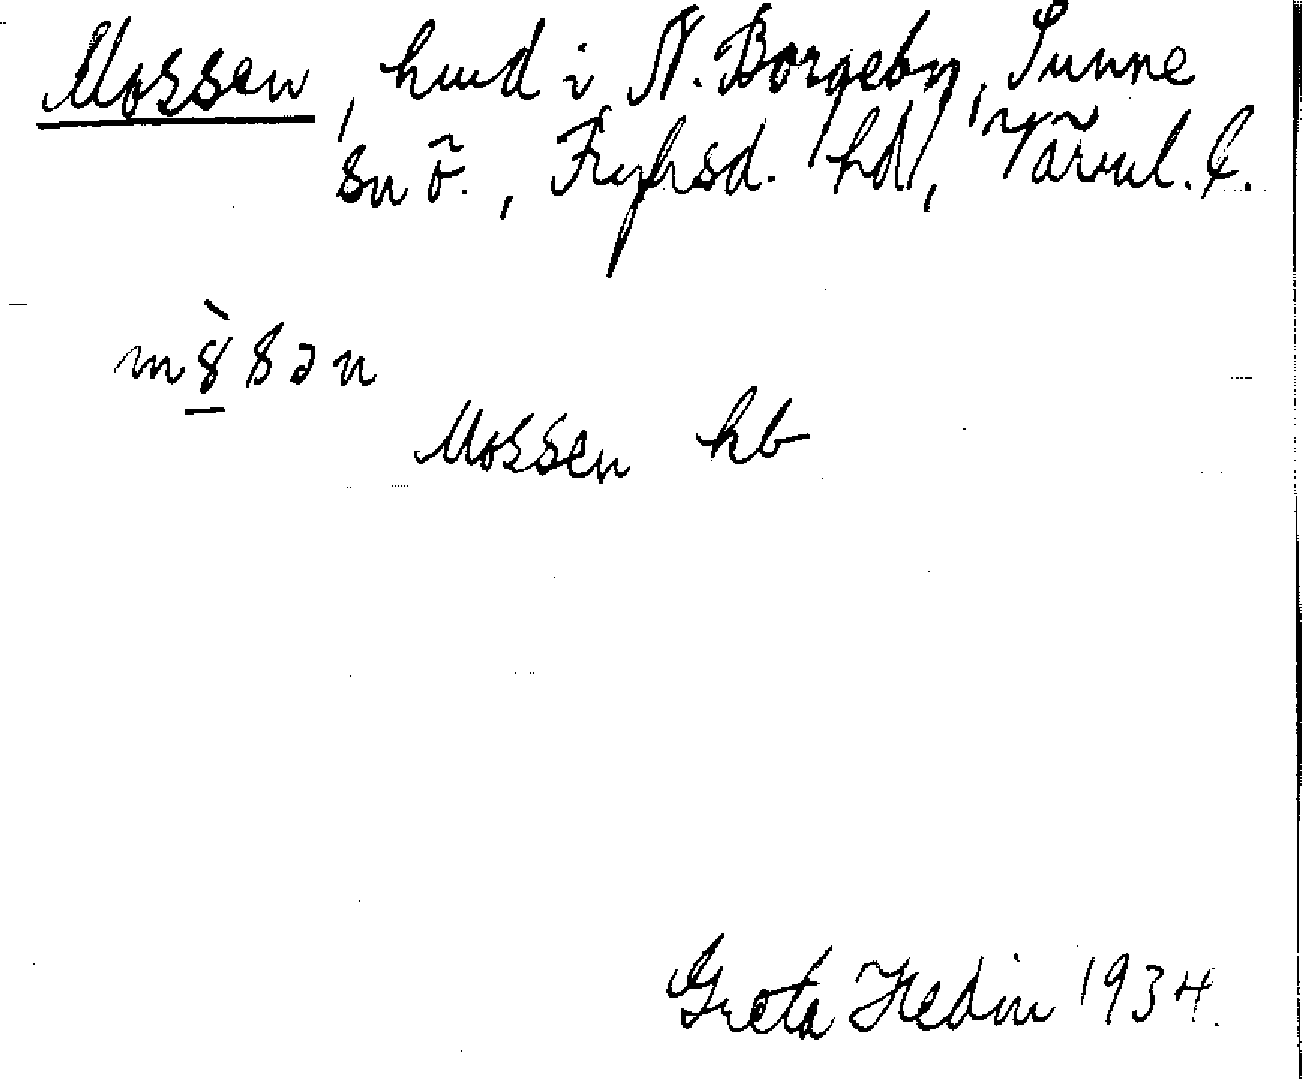 Mossen, hmd i N. Borgeby, Sunne
sn ö., Fryksd. hd, Värml. l.
Mossen hb
Greta Hedin 1934.